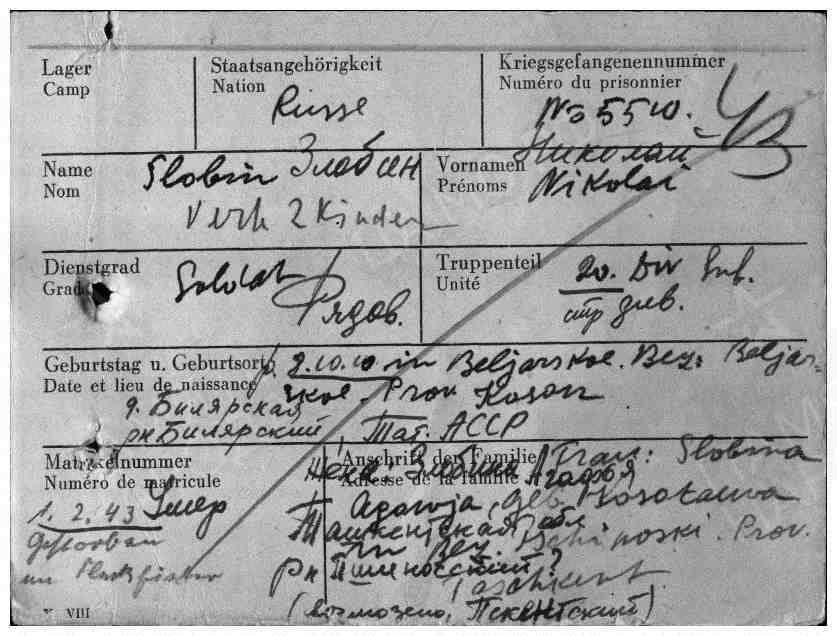 Lager
Camp
Staatsangehörigkeit
Nation
Russe
Kriegsgefangenennummer
Numéro du prisonnier
No 5510.
Name
Nom
Slobin Злобин
Verh 2 Kinder
Vornamen
Prénoms
Николай
Nikolai
Dienstgrad
Grade
Soldat
Рядов.
Truppenteil
Unité
20. Div Inf.
стр див.
Geburtstag u. Geburtsort
Date et lieu de naissance
2.10.10 in Beljarskoe. Bez: Beljar=
skoe. Prov Kasan
д. Билярская
рн Билярский, Тат. АССР
Matrikelnummer
Numéro de matricule
1. 2. 43 Умер
Gestorben
an Fleckfieber
Anschrift der Familie
Adresse de la famille
Жена: Злобина Агафья
Frau: Slobina
Agafija, geb.
Ташкентская обл
in Bez. Pschinoski. Prov.
Рн Пшиносский?
Taschkent
(возможно, Пскентский)
VIII